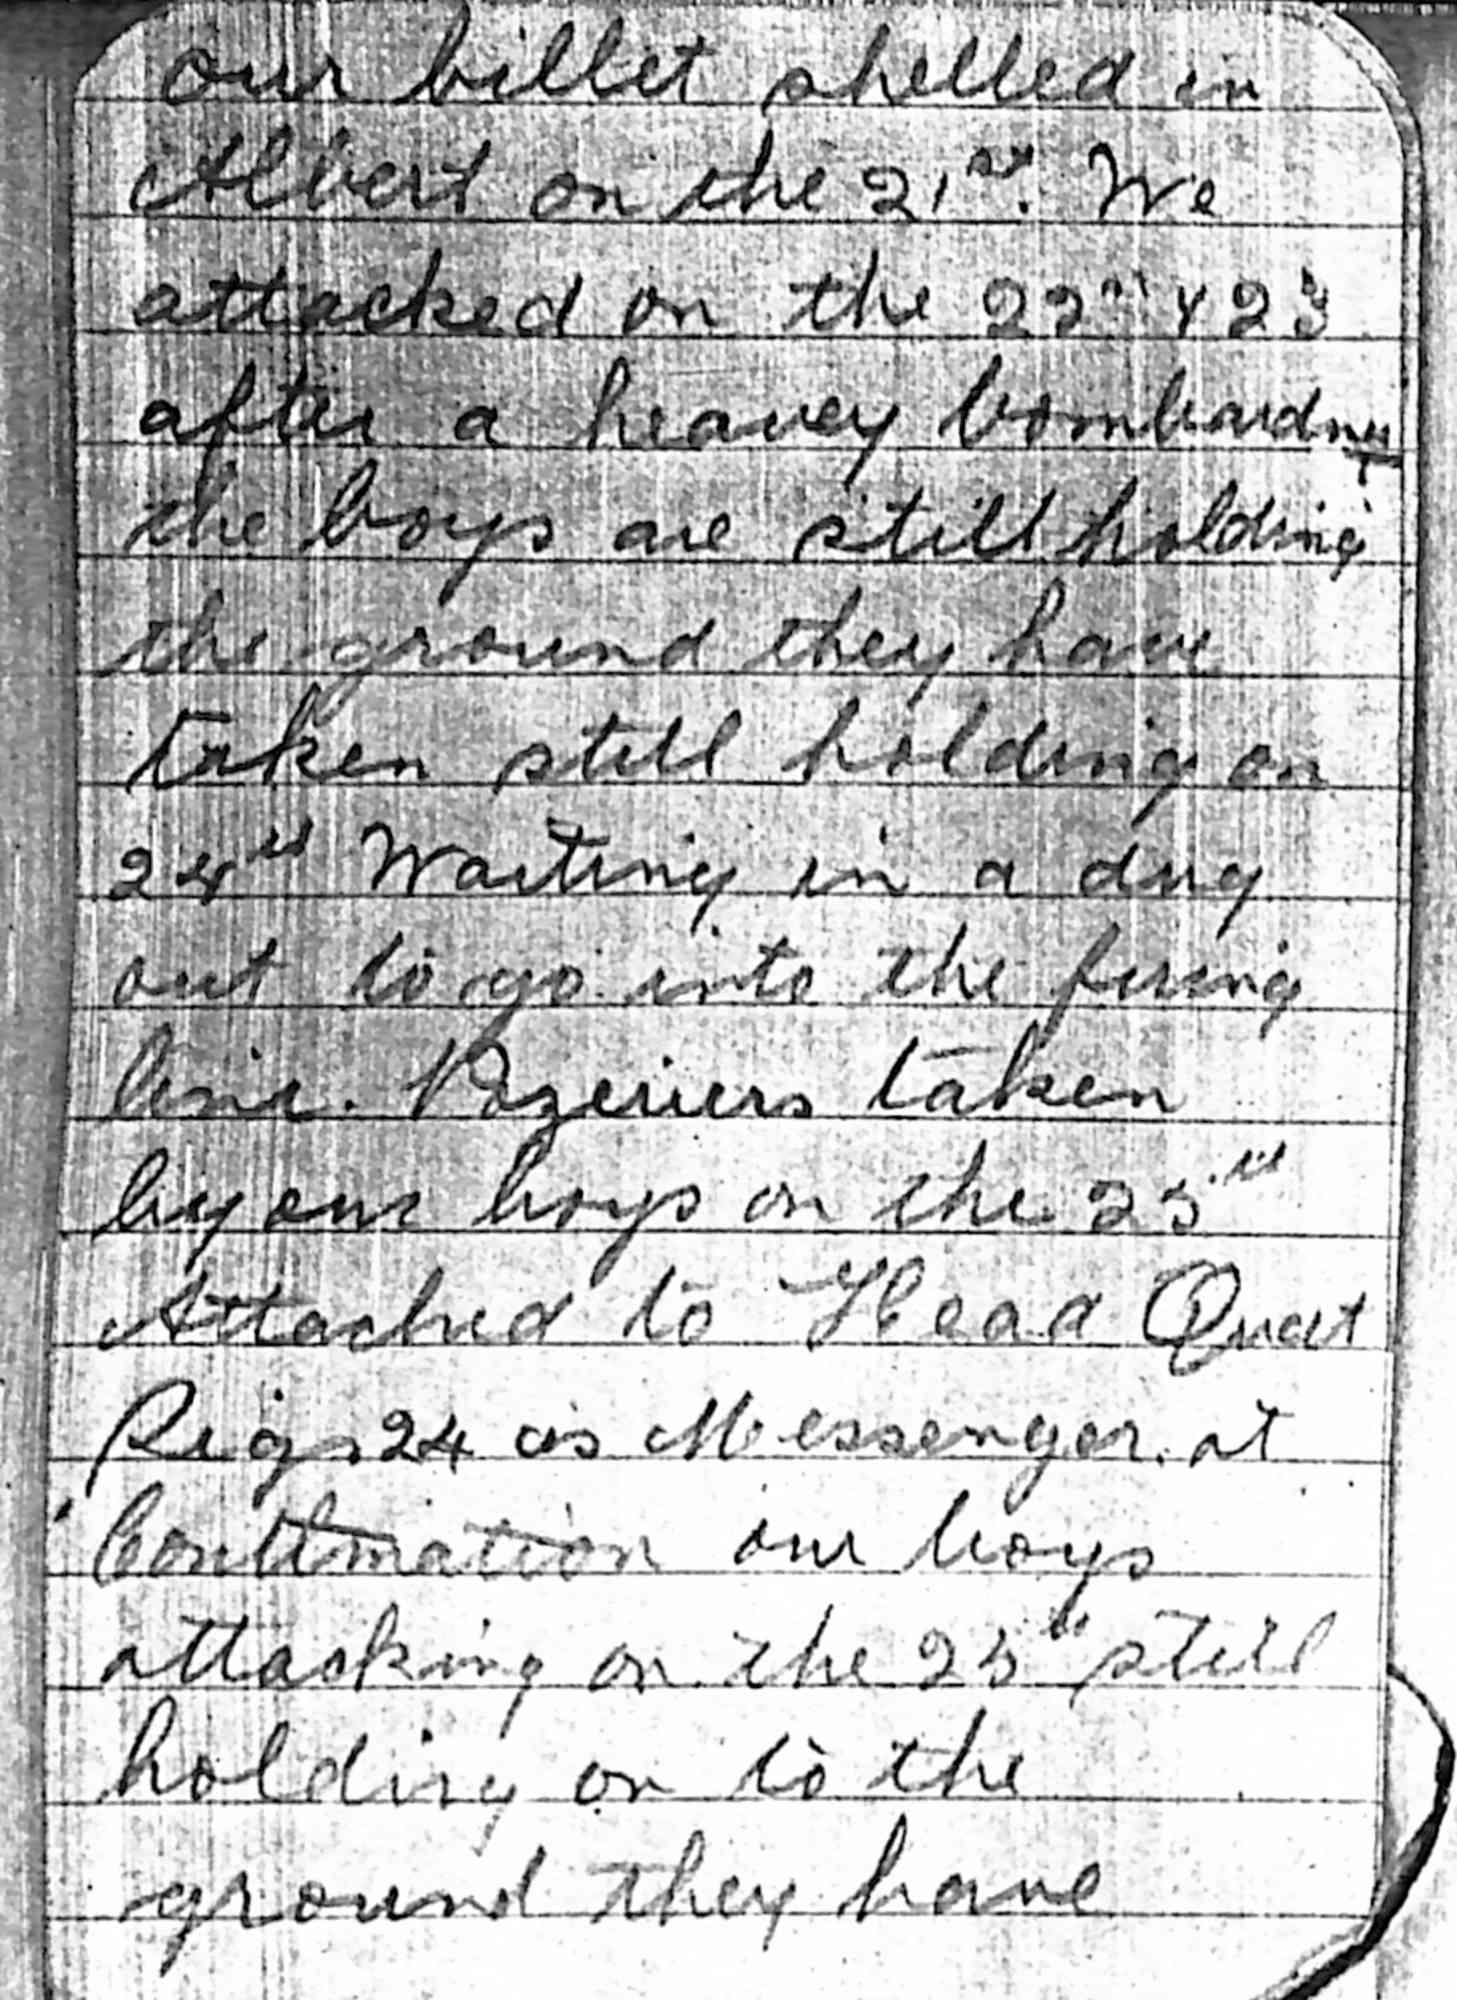 our billet shelled in
Albert on the 21st. We
attacked on the 22nd & 23
after a heavey bombardmt
the boys are still holding
the ground they have
taken still holding on
24th Waiting in a dug
out to go into the firing
line. Pozeriers taken
by our boys on the 23rd
Attached to Head Quat
24 as Messenger. at
our boys
attacking on the 25th still
holding on to the
ground they have